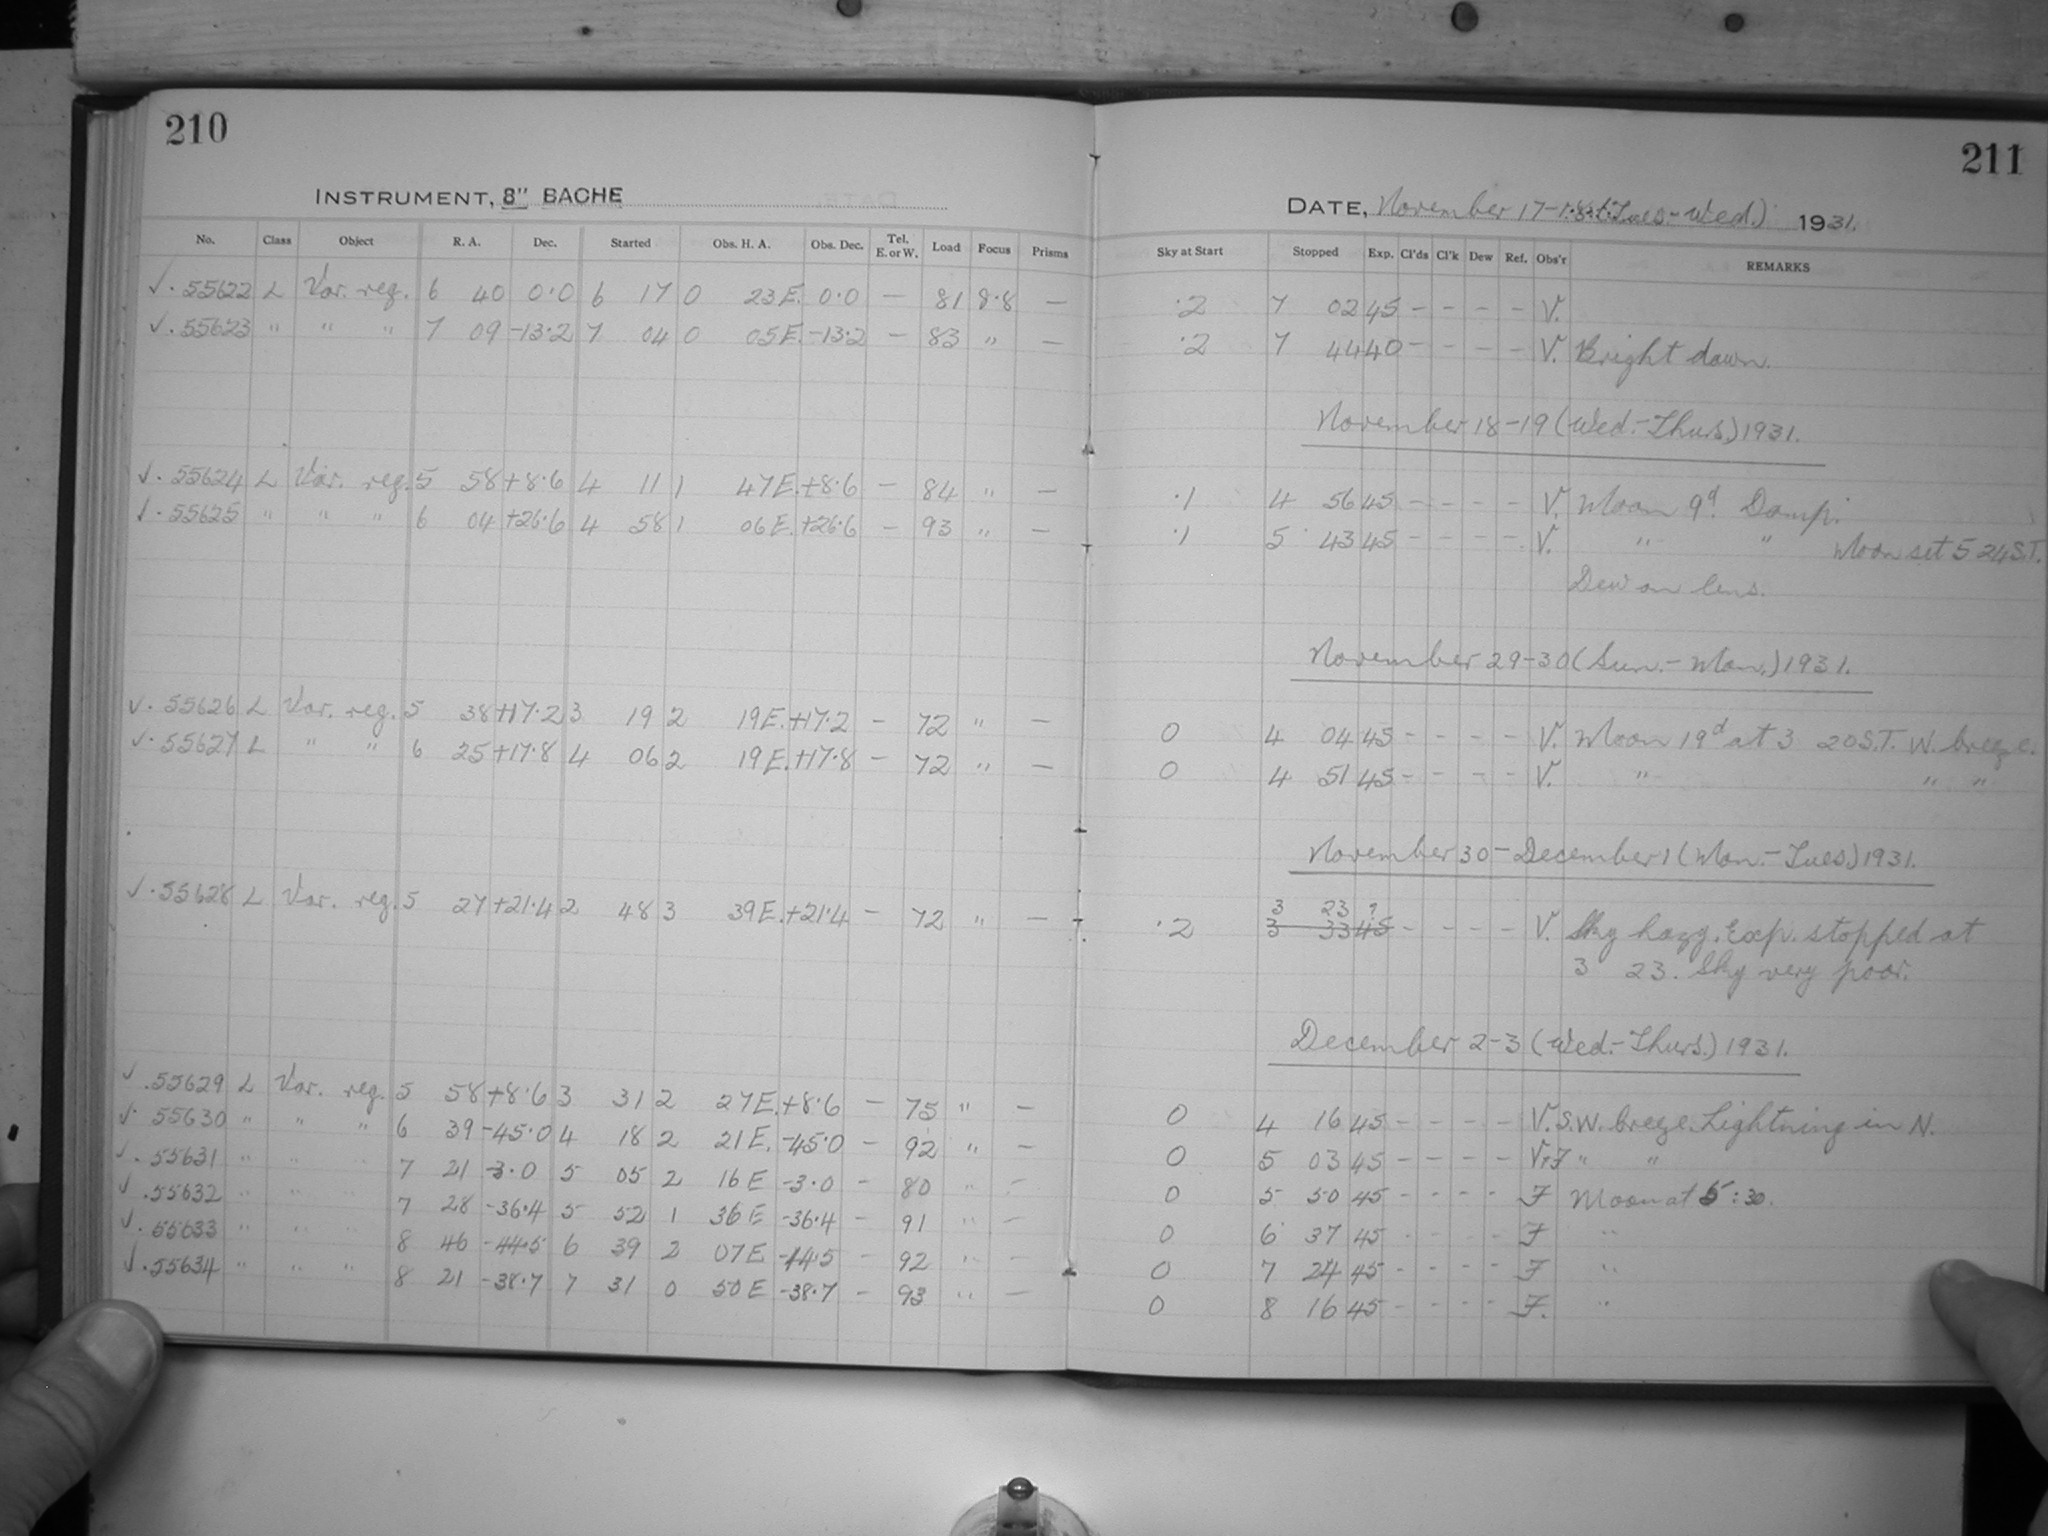 210
INSTRUMENT, 8" BACHE
No. Class Object R. A. Dec. Started Obs. H. A. Obs. Dec. Tel. E. or W. Load Focus Prisms
√ . 55622 L Var. reg. 6 40 0.0 6 17 0 23 E. 0.0 — 81 8.8 —
√ . 55623 " " " 7 09 -13.2 7 04 0 05 E. -13.2 — 83 " —
√ . 55624 L Var. reg. 5 58 +8.6 4 11 1 47 E. +8.6 — 84 " —
√ . 55625 " " " 6 04 +26.6 4 58 1 06 E. +26.6 — 93 " —
√ . 55626 L Var. reg. 5 38 +17.2 3 19 2 19 E. +17.2 — 72 " —
√ . 55627 L " " 6 25 +17.8 4 06 2 19 E. +17.8 — 72 " —
√ . 55628 L Var. reg. 5 27 +21.4 2 48 3 39 E. +21.4 — 72 " —
√ . 55629 L Var. reg. 5 58 +8.6 3 31 2 27 E. +8.6 — 75 " —
√ . 55630 " " " 6 39 -45.0 4 18 2 21 E. -45.0 — 92 " —
√ . 55631 " " " 7 21 -3.0 5 05 2 16 E -3.0 — 80 " —
√ . 55632 " " " 7 28 -36.4 5 52 1 36 E -36.4 — 91 " —
√ . 55633 " " " 8 46 -44.5 6 39 2 07 E -44.5 — 92 " —
√ . 55634 " " " 8 21 -38.7 7 31 0 50 E -38.7 — 93 " —
211
DATE, November 17-18 (Tues.-Wed.) 1931.
Sky at Start Stopped Exp. Cl'ds Cl'k Dew Ref. Obs'r REMARKS
.2 7 02 45 - - - - V.
.2 7 44 40 - - - - V. Bright dawn.
November 18-19 (Wed.-Thurs.) 1931.
.1 4 56 45 - - - - V. Moon 9d. Damp.
.1 5 43 45 - - - - V. " " Moon set 5 24 S.T.
Dew on lens.
November 29-30 (Sun.-Mon.) 1931.
0 4 04 45 - - - - V. Moon 19d at 3 20 S.T. W. breeze.
0 4 51 45 - - - - V. " " "
November 30-December 1 (Mon.-Tues.) 1931.
3 23 ?
.2 3 33 45 - - - - V. Sky hazy. Exp. stopped at
3 23. Sky very poor.
December 2-3 (Wed.-Thurs.) 1931.
0 4 16 45 - - - - V. S.W. breeze. Lightning in N.
0 5 03 45 - - - - V+F " "
0 5 50 45 - - - - F Moon at 5:30.
0 6 37 45 - - - - F "
0 7 24 45 - - - - F "
0 8 16 45 - - - - F. "